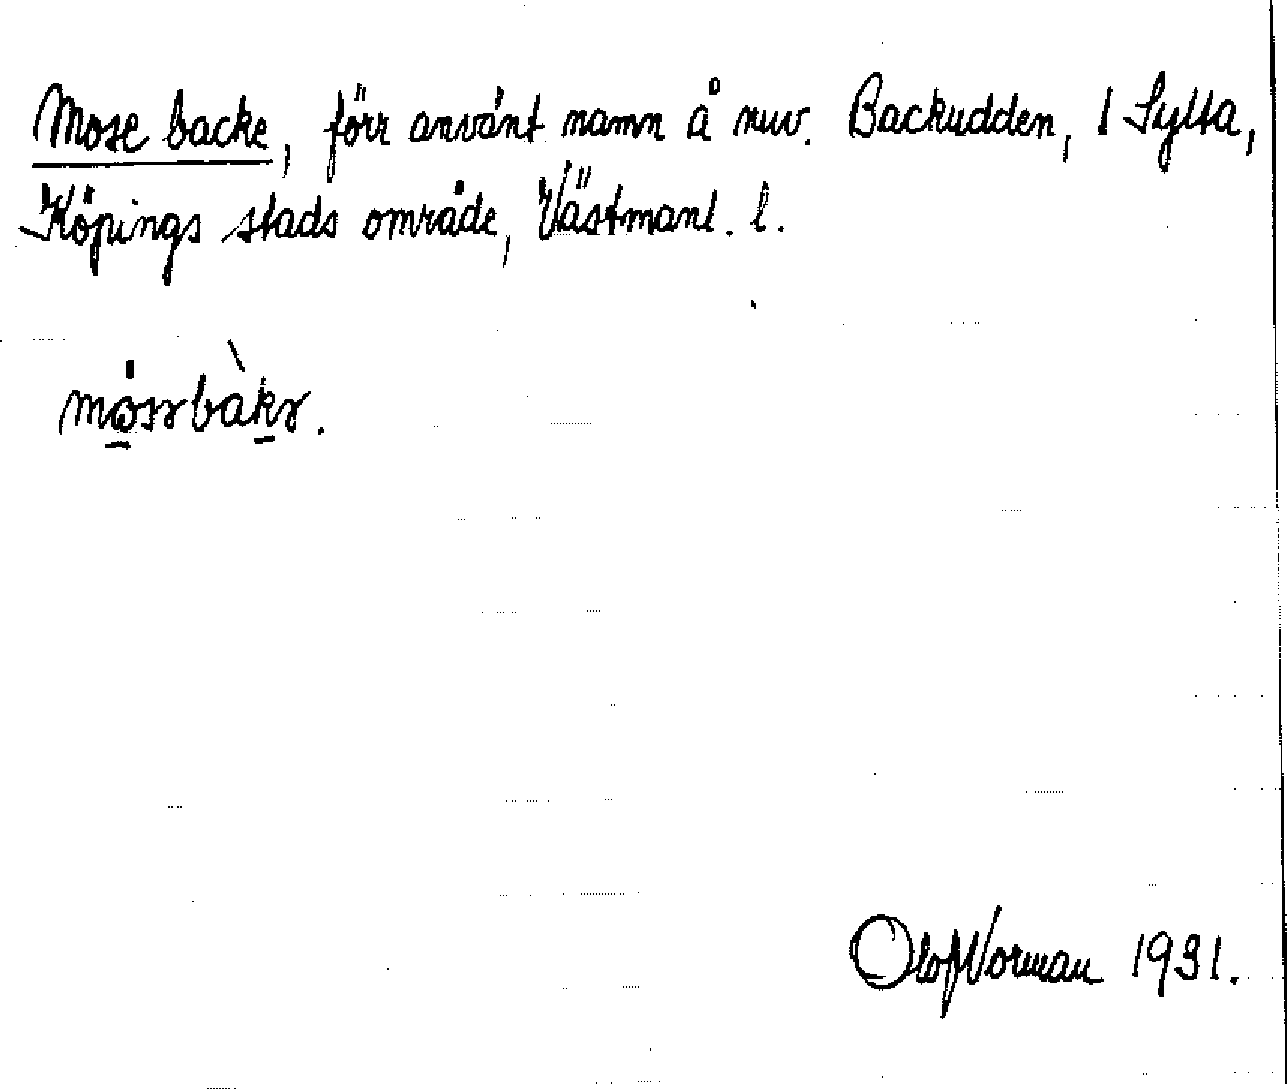 Mose backe, förr använt namn å nuv. Backudden, 1 Sylta,
Köpings stads område, Västmanl. l.
Olof Norman 1931.